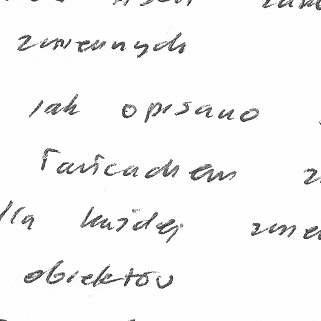 zmiennych
jak opisano
łańcuchem z
dla każdej zmie
obiektów